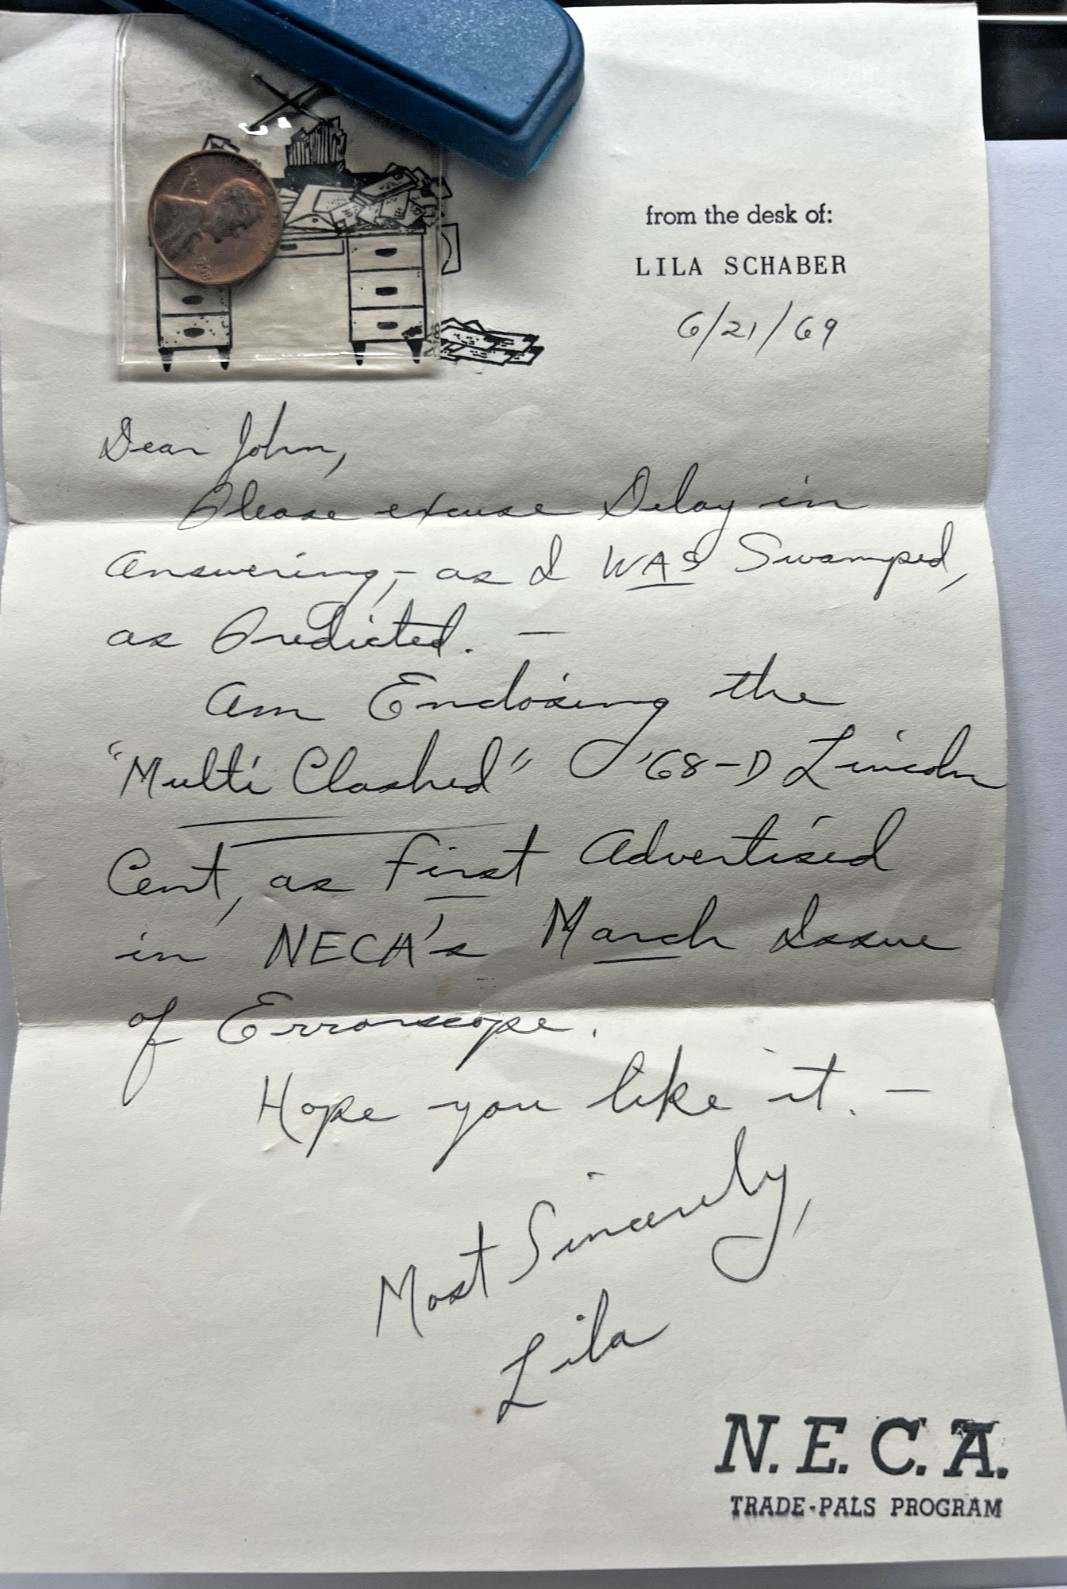 from the desk of:
LILA SCHABER
6/21/69
Dear John,
Please excuse Delay in
answering, - as I WAS Swamped,
as Predicted. —
Am Enclosing the
"Multi Clashed" '68-D Lincoln
Cent, as first Advertised
in NECA's March Issue
of Errorscope.
Hope you like it. —
Most Sincerely,
Lila
N.E.C.A.
TRADE-PALS PROGRAM